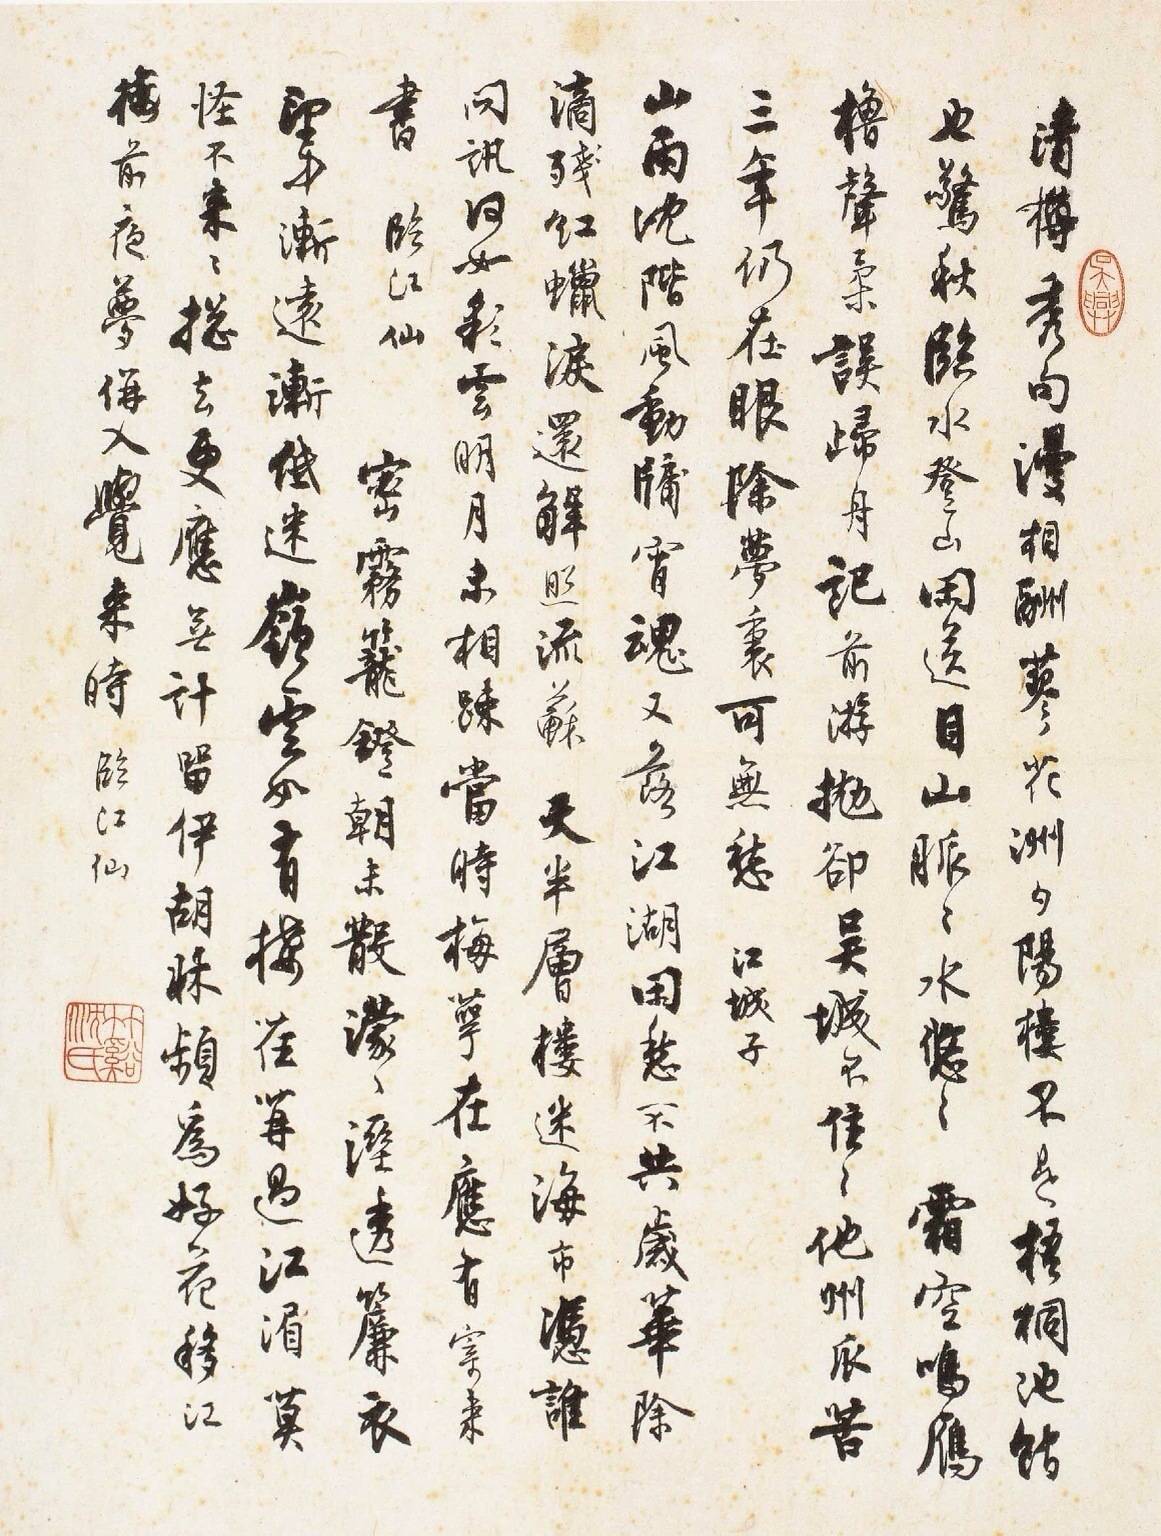 清樽秀句漫相酬蓼花洲夕陽樓不是梧桐池館
也驚秋臨水登山閑送目山脈〻水悠〻 霜空鳴雁
櫓聲柔誤歸舟記前游拋卻吳城不住〻他州瓜苦
三年仍在眼除夢裏可無愁 江城子
山雨沈階風動牖宵魂又落江湖困愁不共歲華除
滴殘紅蠟淚還解照流蘇 天半層樓迷海市憑誰
問訊何如彩雲明月未相疎當時梅萼在應有寄來
書 臨江仙 密霧籠鐙朝未散濛〻溼透簾衣
望中漸遠漸低迷嶺雲如有 算過江湄莫
怪不來〻總去更應無計留伊胡牀頻為好花移江
梅前夜夢併入覺來時 臨江仙
吳興
竹谿沈氏